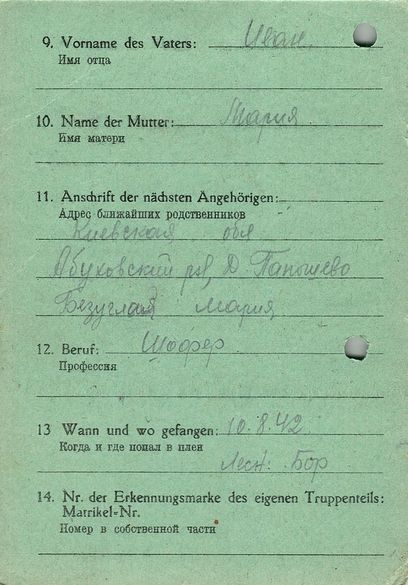 9. Vorname des Vaters: Иван.
Имя отца
10. Name der Mutter: Мария
Имя матери
11. Anschrift der nächsten Angehörigen:
Адрес ближайших родственников
Киевская обл
Абуховский D.
Безуглая Мария
12. Beruf: Шофер
Профессия
13 Wann und wo gefangen: 10.8.42
Когда и где попал в плен
Лесн. Бор
14. Nr. der Erkennungsmarke des eigenen Truppenteils:
Matrikel-Nr.
Номер в собственной части